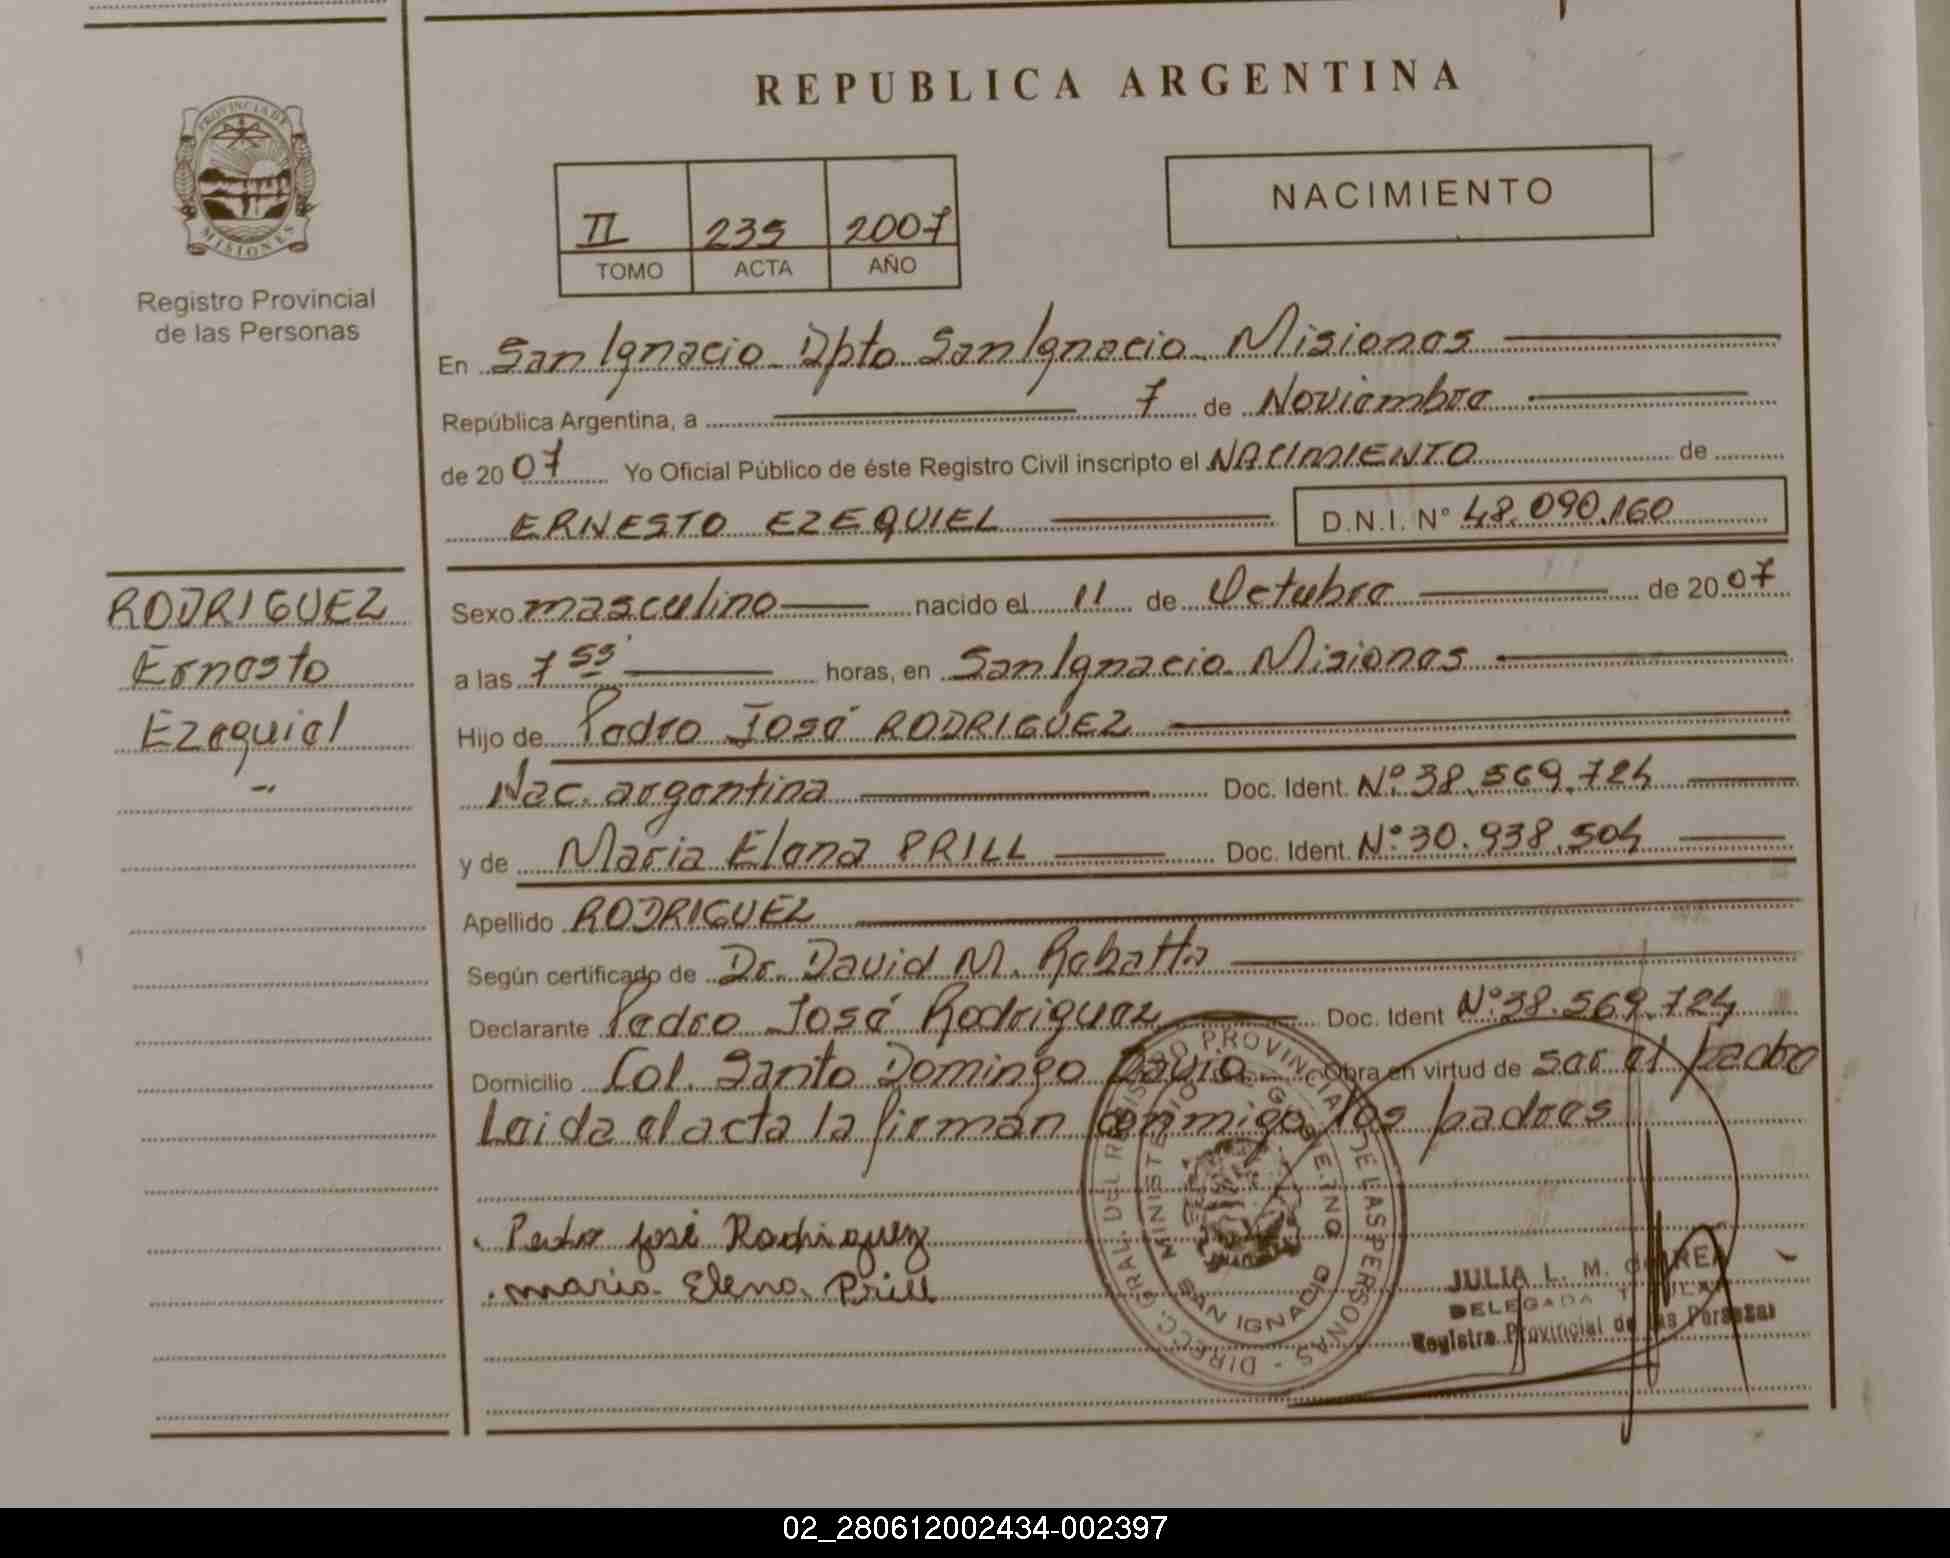 REPUBLICA ARGENTINA
PROVINCIA DE MISIONES
Registro Provincial
de las Personas
NACIMIENTO
II 235 2007
TOMO ACTA AÑO
En San Ignacio Dpto San Ignacio Misiones
República Argentina, a 7 de Noviembre
de 2007 Yo Oficial Público de éste Registro Civil inscripto el NACIMIENTO de
ERNESTO EZEQUIEL D.N.I. N° 48.090.160
RODRIGUEZ
Ernesto
Ezequiel
Sexo masculino nacido el 11 de Octubre de 2007
a las 7 55' horas, en San Ignacio Misiones
Hijo de Pedro José RODRIGUEZ
Nac. argentina Doc. Ident. N° 38.569.724
y de Maria Elena PRILL Doc. Ident. N° 30.938.504
Apellido RODRIGUEZ
Según certificado de Dr. David M. Robatta
Declarante Pedro José Rodriguez Doc. Ident N° 38.569.724
Domicilio Col. Santo Domingo Savio Obra en virtud de ser el padre
Leida el acta la firman conmigo los padres
Pedro José Rodriguez
maria Elena Prill
DIRECC. GRAL. DEL REGISTRO PROVINCIAL DE LAS PERSONAS
MINISTERIO DE GOBIERNO
SAN IGNACIO
JULIA L. M. CORREA
DELEGADA TITULAR
Registro Provincial de las Personas
02_280612002434-002397